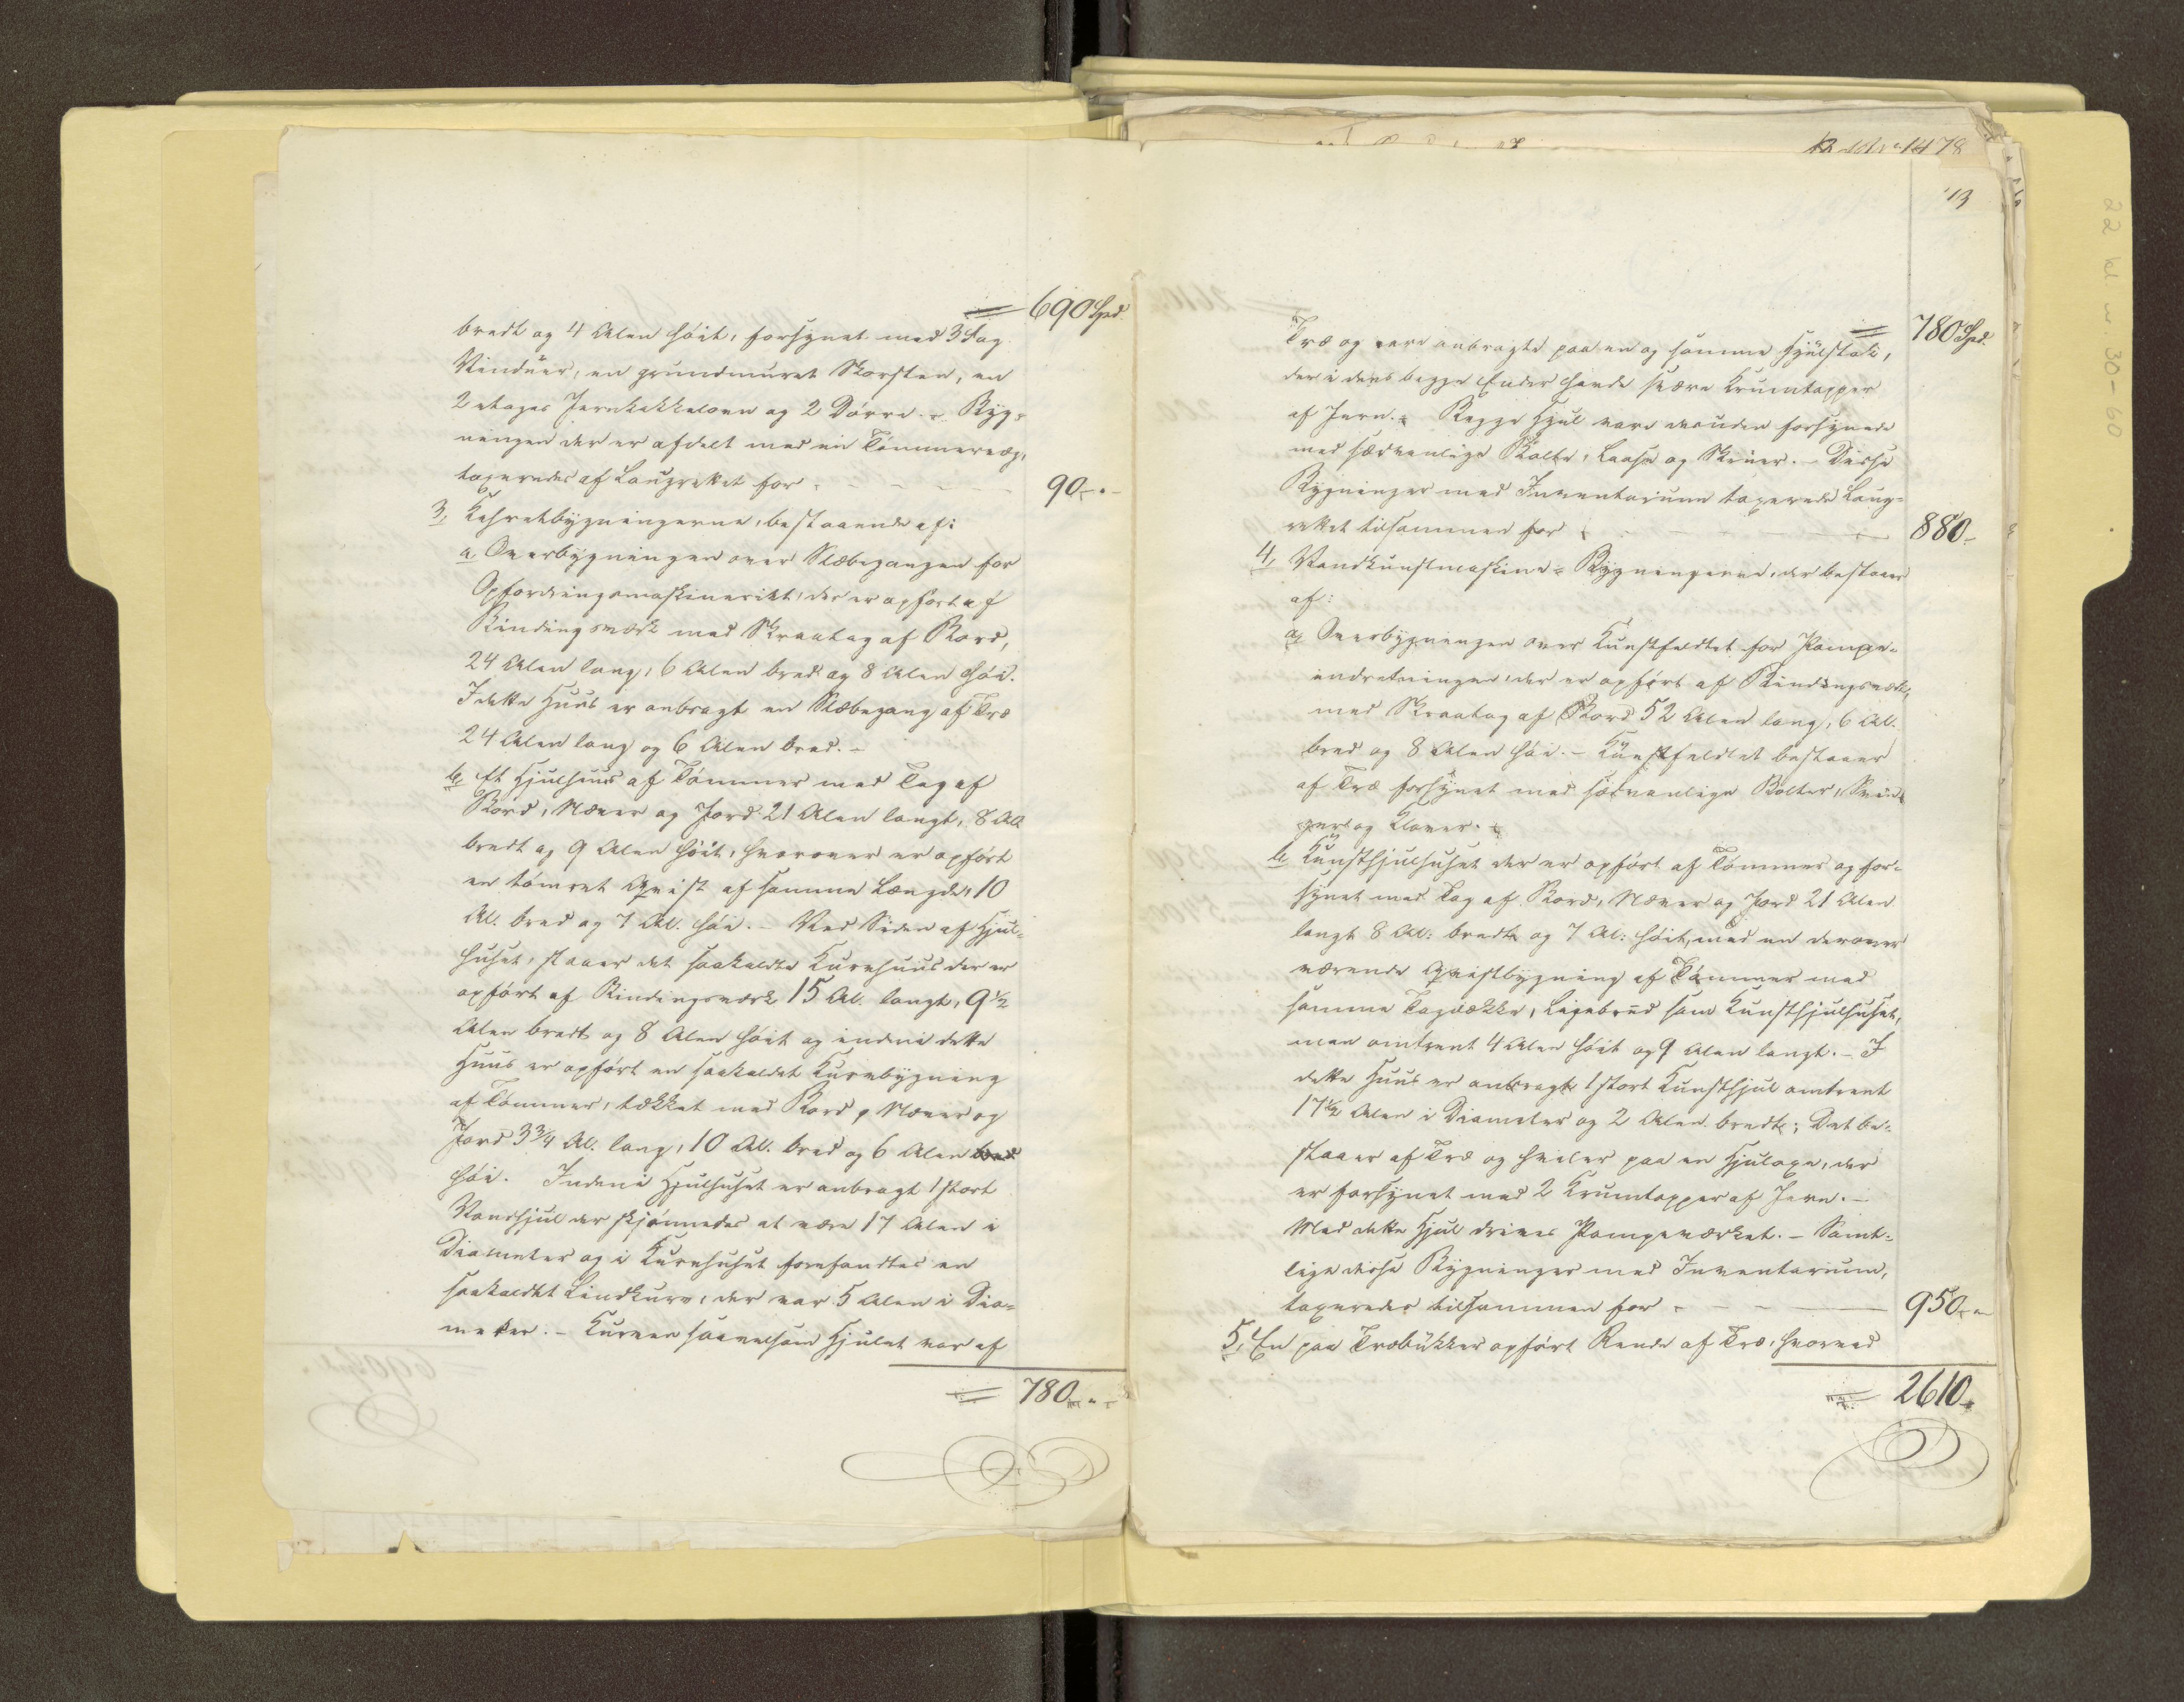 = 690 Spd.
bredt og 4 Alen høit, forsynet med 3 Fag
Vinduer, en grundmuret Skorsten, en
2 etages Jernkakkelovn og 2 Dörre. - Byg-
ningen der er afdelt med en Tömmervæg,
taxeredes af Laugrettet for - - - - - 90 - " -
3, Kehrradbygningerne, bestaaende af:
a, Overbygningen over Slæbegangen for
Opfordringsmaskineriet, der er opført af
Bindingsværk med Skraatag af Bord,
24 Alen lang, 6 Alen bred og 8 Alen høi.
I dette Huus er anbragt en Slæbegang af Træ
24 Alen lang og 6 Alen bred. -
b, Et Hjulhuus af Tömmer med Tag af
Bord, Næver og Jord 21 Alen langt, 8 Al.
bredt og 9 Alen höit, hvorover er opfört
en tömret Qvist af samme Længde, 10
Al. bred og 7 Al. høi. - Ved Siden af Hjul-
huset, staaer det saakaldte Kurvhuus der er
opfört af Bindingsværk 15 Al. langt, 9 1/2
Alen bredt og 8 Alen höit og indeni dette
Huus er opfört en saakaldet Kurvbygning
af Tömmer, tækket med Bord, Næver og
Jord 3 3/4 Al. lang, 10 Al. bred og 6 Alen bred
höi. Indeni Hjulhuset er anbragt 1 stort
Vandhjul der skjönnedes at være 17 Alen i
Diameter og i Kurvhuset forefandtes en
saakaldet Lindkurv, der var 5 Alen i Dia-
meter. - Kurven saavelsom Hjulet var af
= 780 - " -
13
= 780 Spd.
Træ og vare anbragte paa en og samme Hjulstok,
der i dens begge Ender havde svære Krumtapper
af Jern. - Begge Hjul vare desuden forsynede
med sædvanlige Bolte, Laase og Skruer. - Disse
Bygninger med Inventarium taxerede Laug-
rettet tilsammen for - - - - 880 -
4, Vandkunstmaskine-Bygningerne, der bestaaer
af:
a, Overbygningen over Kunstfeldtet for Pompe-
indretningen, der er opfört af Bindingsværk,
med Skraatag af Bord 52 Alen lang, 6 Al.
bred og 8 Alen høi. - Kunstfeldtet bestaaer
af Træ forsynet med sædvanlige Bolter, Svin-
ger og Klover. -
b, Kunsthjulhuset der er opfört af Tömmer og for-
synet med Tag af Bord, Næver og Jord 21 Alen
langt 8 Al: bredt og 7 Al: höit, med en derover
værende Qvistbygning af Tömmer med
samme Tagdække, ligebred som Kunsthjulhuset,
men omtrent 4 Alen höit og 9 Alen langt. - I
dette Huus er anbragt 1 stort Kunsthjul omtrent
17 1/2 Alen i Diameter og 2 Alen bredt; Det be-
staaer af Træ og hviler paa en Hjulaxe, der
er forsynet med 2 Krumtapper af Jern. -
Med dette Hjul drives Pompeværket. - Samt-
lige disse Bygninger med Inventarium,
taxeredes tilsammen for - - - 950 - "
5, En paa Træbukker opfört Rende af Træ, hvorved
= 2610 -
22 kl nr. 30-60